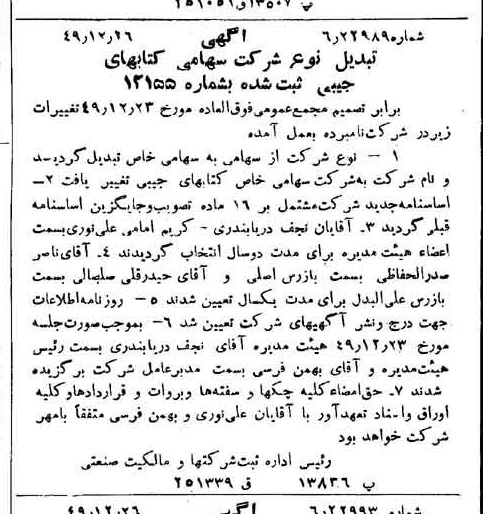 پ ۱۳۵۰۷ ق ۲۵۱۰۵۱
شماره ۶٫۲۲۹۸۹ آگهی ۴۹٫۱۲٫۲۶
تبدیل نوع شرکت سهامی کتابهای
جیبی ثبت شده بشماره ۱۲۱۵۵
برابر تصمیم مجمع‌عمومی‌فوق‌العاده مورخ ۴۹٫۱۲٫۲۳ تغییرات
زیر در شرکت‌نامبرده بعمل آمده
۱ – نوع شرکت از سهامی به سهامی خاص تبدیل گردیـــد
و نام شرکت به‌شرکت سهامی خاص کتابهای جیبی تغییر یافت ۲–
اساسنامه جدید شرکت مشتمل بر ۱۶ ماده تصویب‌وجایگزین اساسنامه
قبلی گردید ۳– آقایان نجف دریابندری - کریم امامی علی‌نوری بسمت
اعضاء هیئت مدیره برای مدت دوسال انتخاب گردیدند ۴– آقای ناصر
صدرالحفاظی بسمت بازرس اصلی و آقای حیدرقلی صلصالی بسمت
بازرس علی‌البدل برای مدت یکسال تعیین شدند ۵– روزنامه اطلاعات
جهت درج ونشر آگهیهای شرکت تعیین شد ۶– بموجب‌صورت‌جلسه
مورخ ۴۹٫۱۲٫۲۳ هیئت مدیره آقای نجف دریابندری بسمت رئیس
هیئت‌مدیره و آقای بهمن فرسی بسمت مدیرعامل شرکت برگزیده
شدند ۷– حق‌امضاء کلیه چکها و سفته‌ها وبروات و قراردادها وکلیه
اوراق واسناد تعهدآور با آقایان علی‌نوری و بهمن فرسی متفقاً بامهر
شرکت خواهد بود
رئیس اداره ثبت‌شرکتها و مالکیت صنعتی
پ ۱۳۸۳۶ ق ۲۵۱۳۳۹
شماره ۶٫۲۲۹۹۳ آگهی ۴۹٫۱۲٫۲۶